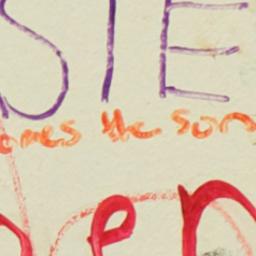 SIE
omes the son
en